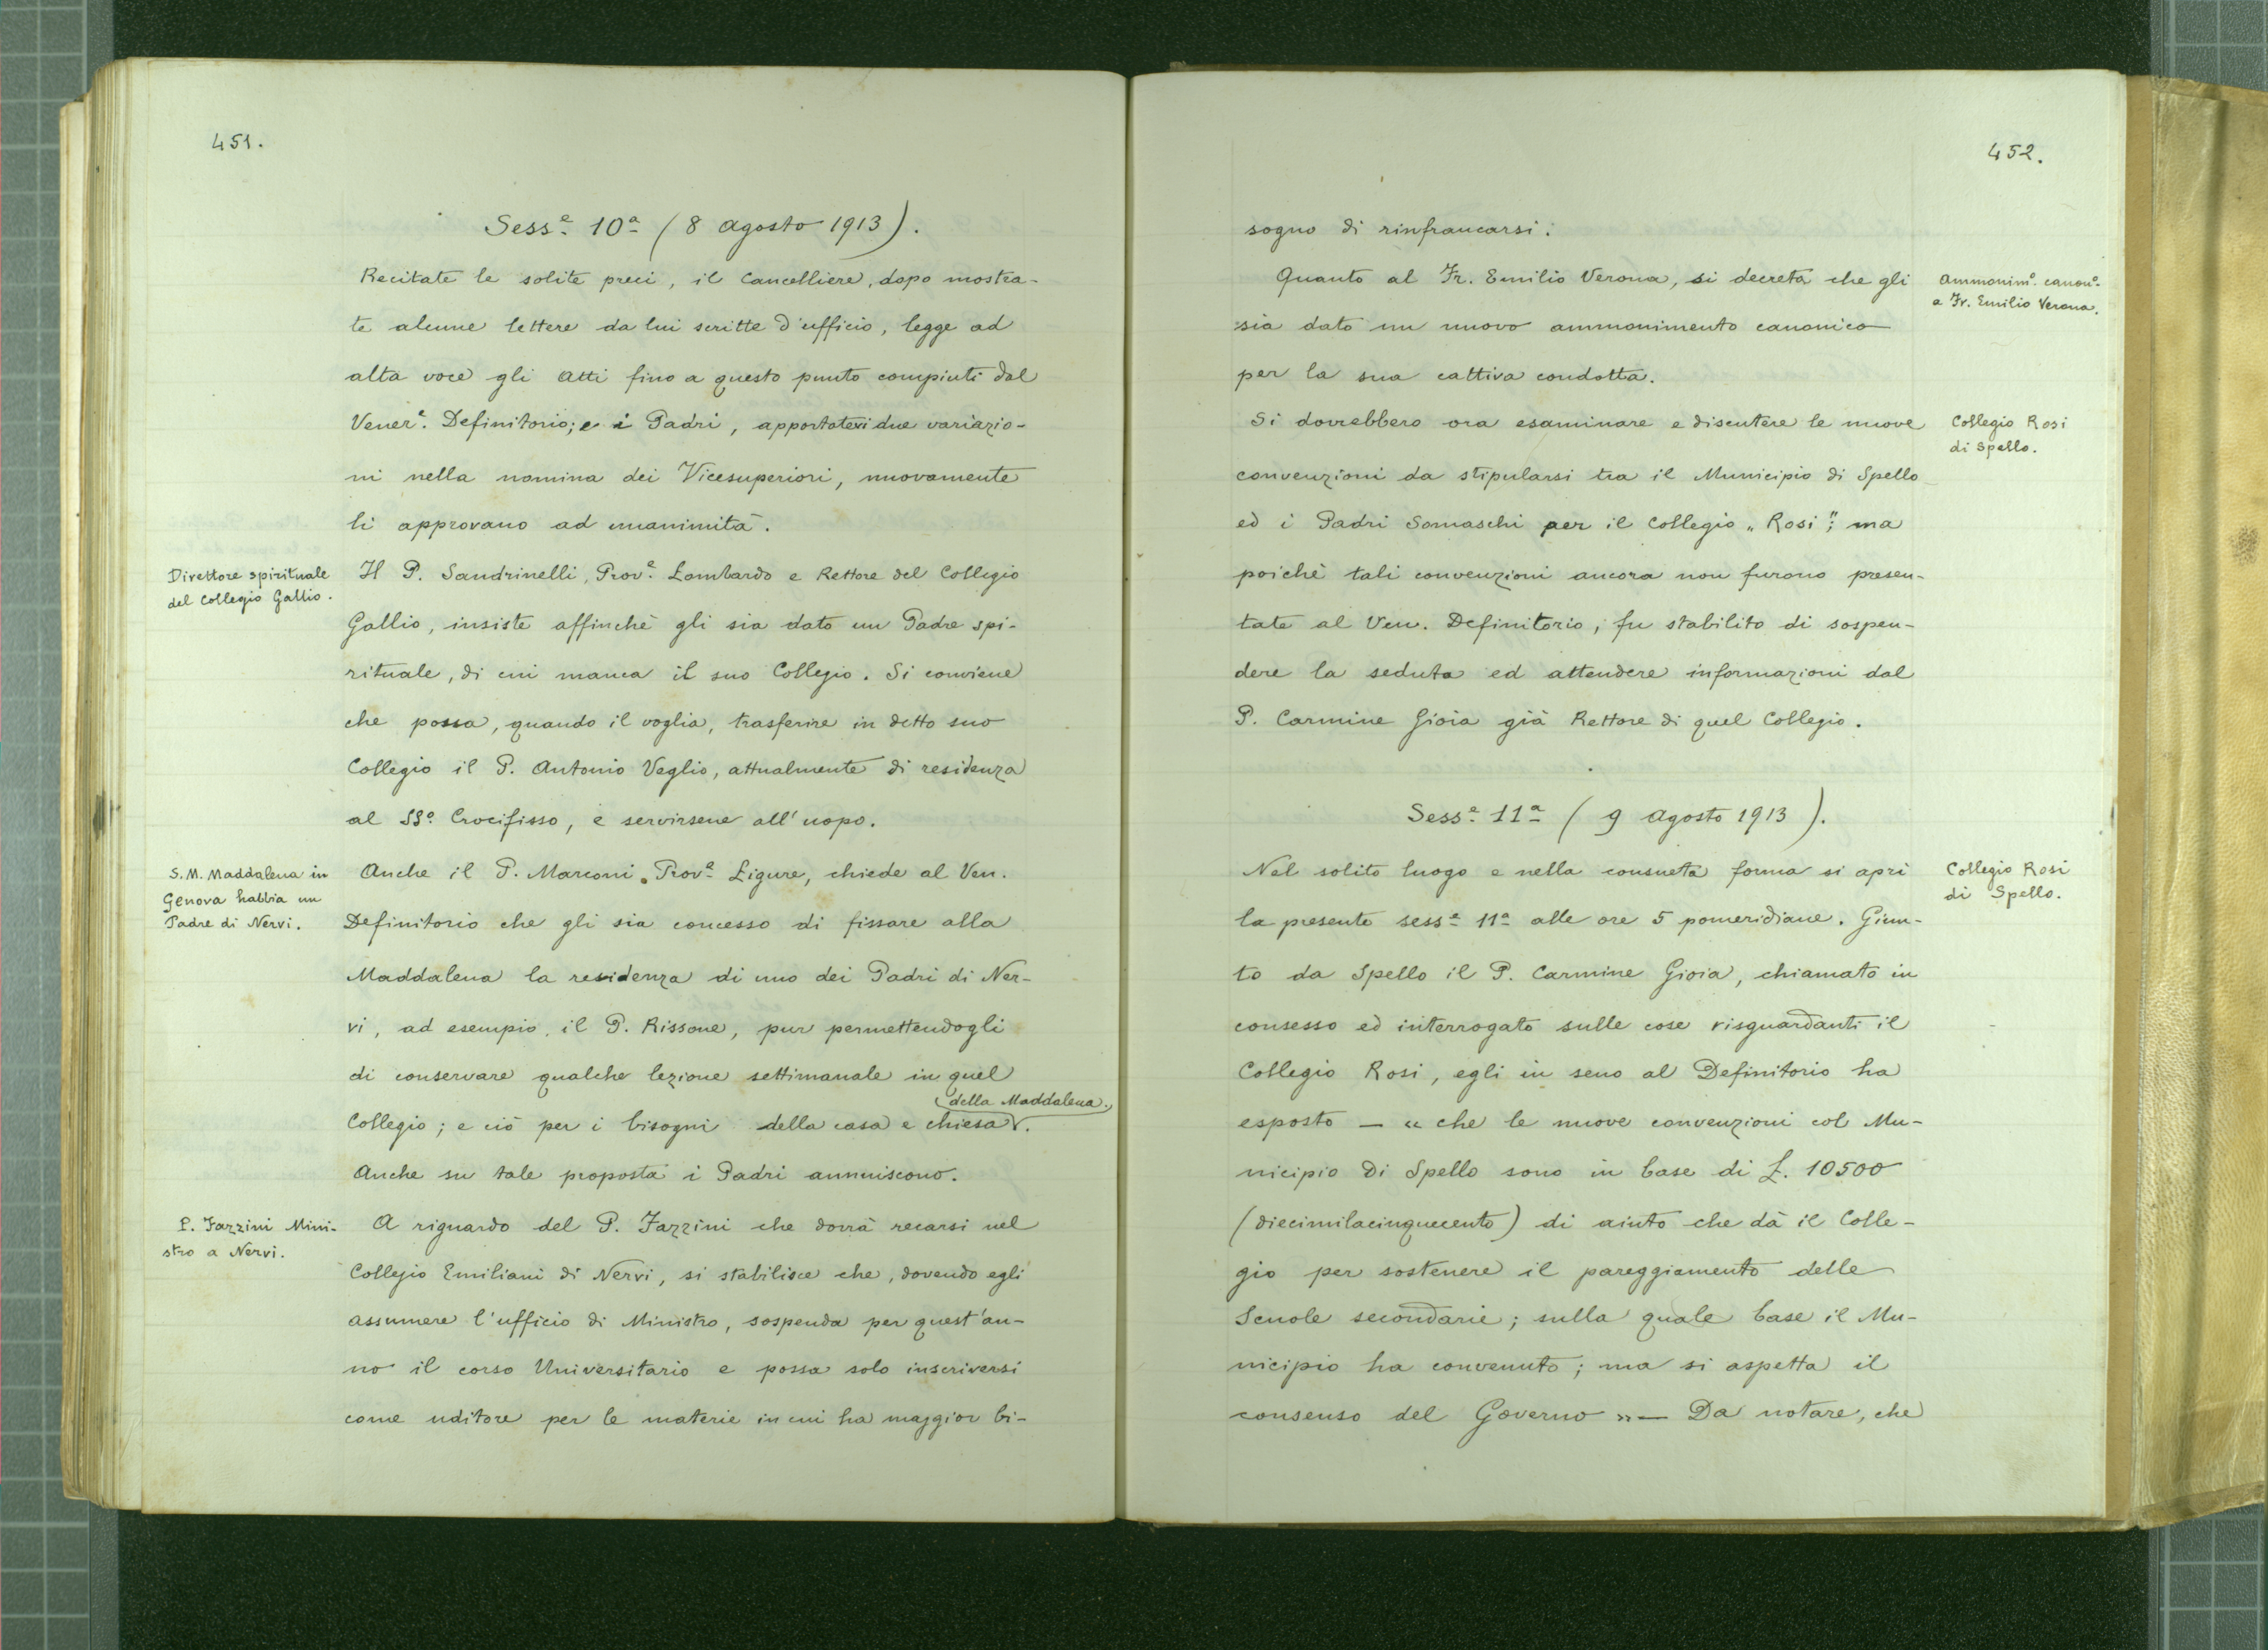 451.
Sess.e 10a (8 Agosto 1913).
Recitate le solite preci, il Cancelliere, dopo mostra-
te alcune lettere da lui scritte d'ufficio, legge ad
alta voce gli Atti fino a questo punto compiuti dal
Vener.e Definitorio; e i Padri, apportatevi due variazio-
ni nella nomina dei Vicesuperiori, nuovamente
li approvano ad unanimità.
Direttore spirituale
del Collegio Gallio.
Il P. Sandrinelli, Prov.e Lombardo e Rettore del Collegio
Gallio, insiste affinchè gli sia dato un Padre spi-
rituale, di cui manca il suo Collegio. Si conviene
che possa, quando il voglia, trasferire in detto suo
Collegio il P. Antonio Veglio, attualmente di residenza
al SS.o Crocifisso, e servirsene all'uopo.
S. M. Maddalena in
Genova habbia un
Padre di Nervi.
Anche il P. Marconi, Prov.e Ligure, chiede al Ven.
Definitorio che gli sia concesso di fissare alla
Maddalena la residenza di uno dei Padri di Ner-
vi, ad esempio, il P. Rissone, pur permettendogli
di conservare qualche lezione settimanale in quel
della Maddalena.
Collegio; e ciò per i bisogni della casa e chiesa.
Anche su tale proposta i Padri annuiscono.
P. Fazzini Mini-
stro a Nervi.
A riguardo del P. Fazzini che dovrà recarsi nel
Collegio Emiliani di Nervi, si stabilisce che, dovendo egli
assumere l'ufficio di Ministro, sospenda per quest'an-
no il corso Universitario e possa solo inscriversi
come uditore per le materie in cui ha maggior bi-
452.
sogno di rinfrancarsi.
Quanto al Fr. Emilio Verona, si decreta che gli
sia dato un nuovo ammonimento canonico
per la sua cattiva condotta.
Ammonim.o canon.o
a Fr. Emilio Verona.
Si dovrebbero ora esaminare e discutere le nuove
convenzioni da stipularsi tra il Municipio di Spello
ed i Padri Somaschi per il Collegio „Rosi"; ma
poichè tali convenzioni ancora non furono presen-
tate al Ven. Definitorio, fu stabilito di sospen-
dere la seduta ed attendere informazioni dal
P. Carmine Gioia già Rettore di quel Collegio.
Collegio Rosi
di Spello.
Sess.e 11a (9 Agosto 1913).
Nel solito luogo e nella consueta forma si aprì
la presente sess.e 11a alle ore 5 pomeridiane. Giun-
to da Spello il P. Carmine Gioia, chiamato in
consesso ed interrogato sulle cose risguardanti il
Collegio Rosi, egli in seno al Definitorio ha
esposto — « che le nuove convenzioni col Mu-
nicipio di Spello sono in base di £. 10500
(diecimilacinquecento) di aiuto che dà il Colle-
gio per sostenere il pareggiamento delle
Scuole secondarie; sulla quale base il Mu-
nicipio ha convenuto; ma si aspetta il
consenso del Governo » — Da notare, che
Collegio Rosi
di Spello.